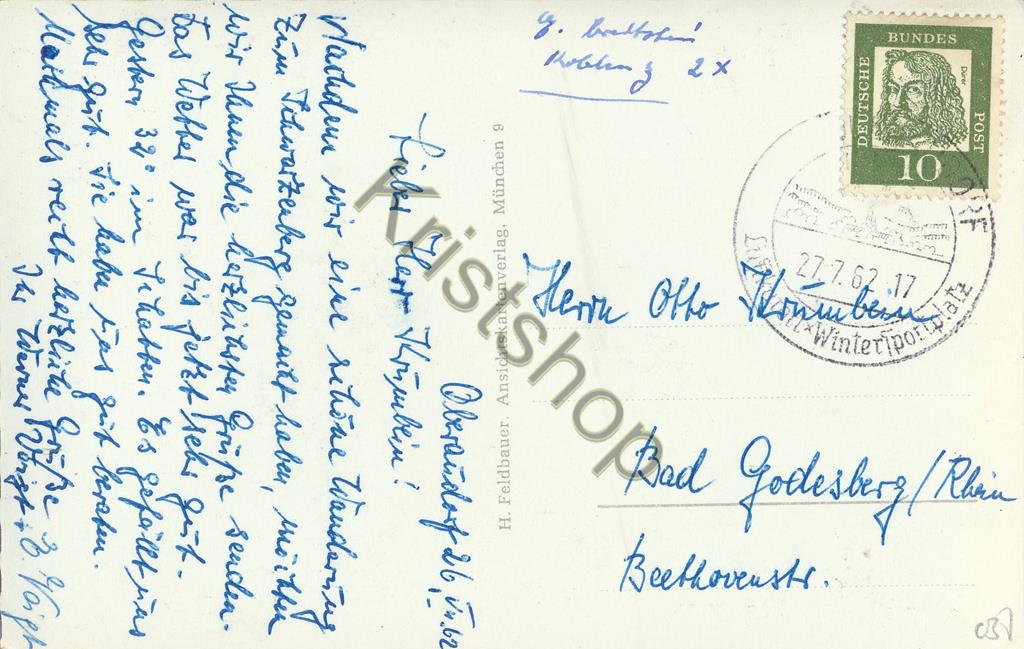 Oberaudorf 26. VII. 62
Lieber Herr Krümbein!
Nachdem wir eine schöne Wanderung
zum Schwarzenberg gemacht haben, möchten
wir Ihnen die herzlichsten Grüße senden.
Das Wetter war bis jetzt sehr gut.
Gestern 32° im Schatten. Es gefällt uns
sehr gut. Sie haben uns gut beraten.
Nochmals recht herzliche Grüße
Ihr Werner Voigt + E. Voigt
H. Feldbauer, Ansichtskartenverlag, München 9
Koblenz 2 x
DEUTSCHE
BUNDES
POST
Dürer
10
ORF
27.7.62-17
Wintersportplatz
Herrn Otto Krümbein
Bad Godesberg/Rhein
Beethovenstr.
Kristshop